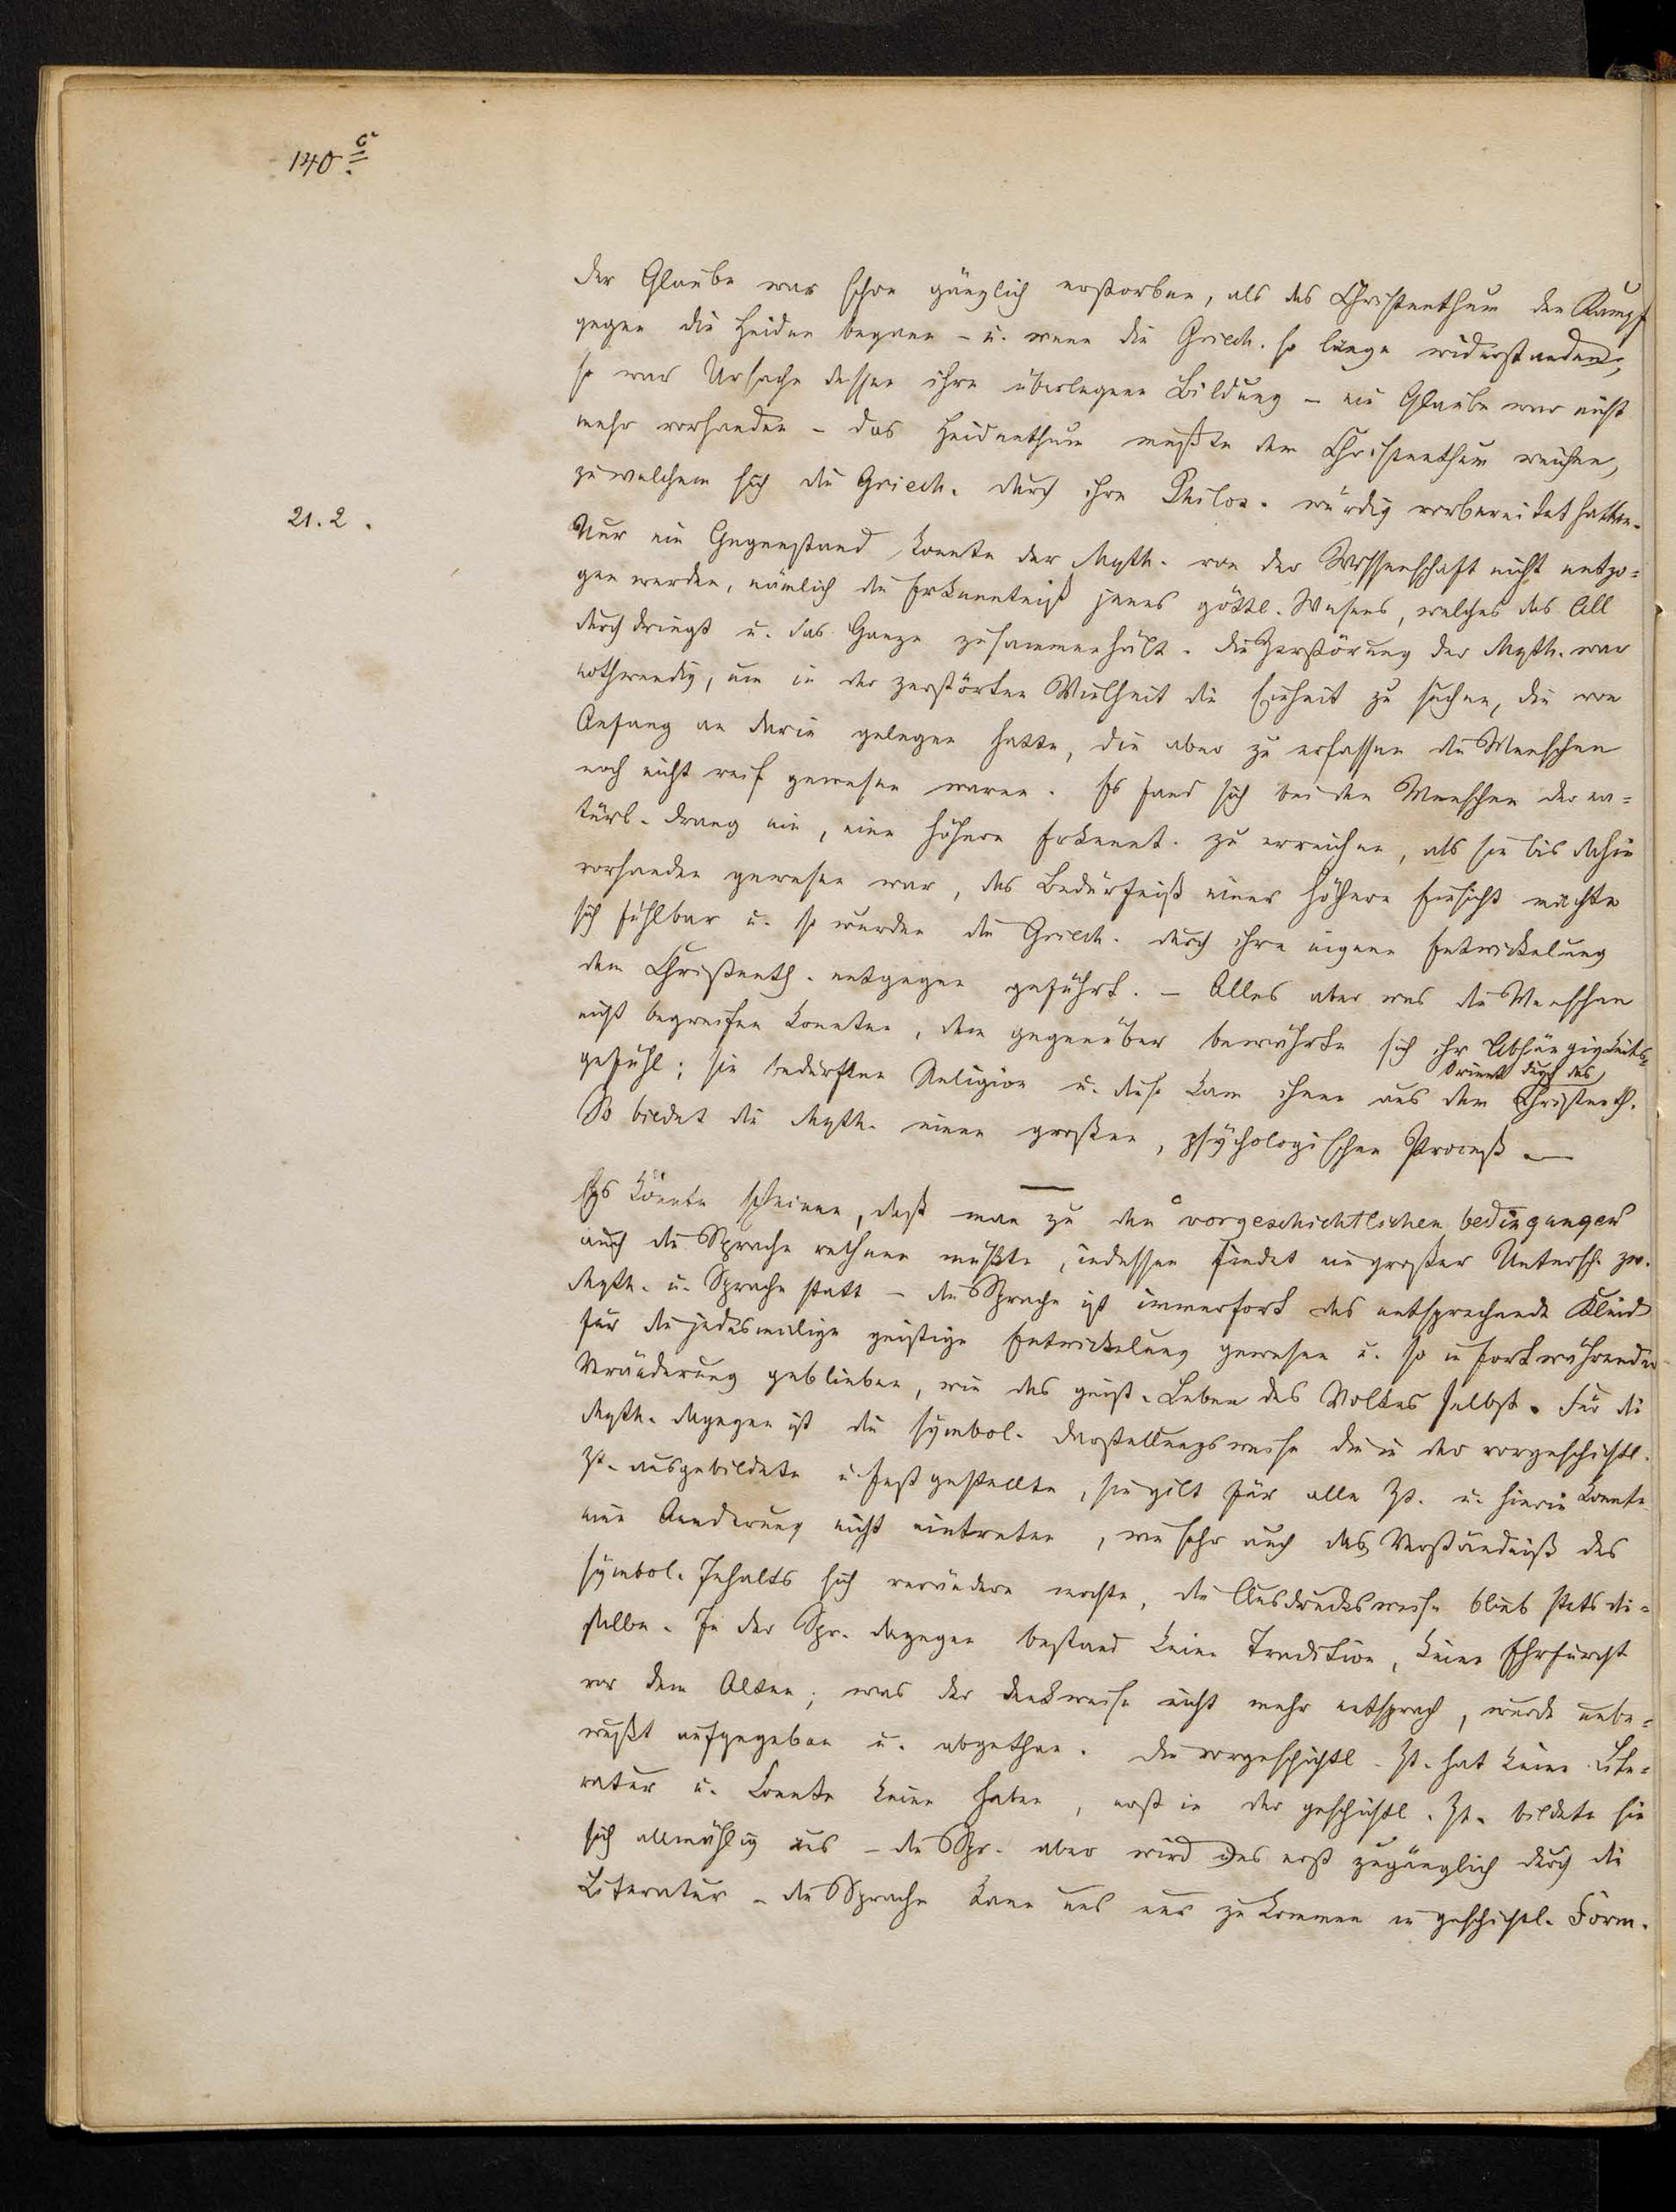 140c.
der Glaube war schon gänzlich erstorben, als das Christenthum den Kampf
gegen die Heiden begann – u. wenn die Griech. so lange widerstanden,
so war Ursache dessen ihre überlegene Bildung – ein Glaube war nicht
mehr vorhanden – das Heidenthum mußte dem Christenthum weichen,
zu welchem sich die Griech. durch ihre Philos. würdig vorbereitet hatten.
21.2.
Nur ein Gegenstand konnte der Myth. von der Wissenschaft nicht entzo=
gen werden, nämlich die Erkenntniß jenes göttl. Wesens, welches das All
durchdringt u. das Ganze zusammenhält. Die Zerstörung der Myth. war
nothwendig, um in der zerstörten Vielheit die Einheit zu suchen, die von
Anfang an darin gelegen hatte, die aber zu erfassen die Menschen
noch nicht reif gewesen waren. Es fand sich bei den Menschen der na=
türl. Drang ein, eine höhere Erkennt. zu erreichen, als sie bis dahin
vorhanden gewesen war, das Bedürfniß einer höhern Einsicht machte
sich fühlbar u. so wurden die Griech. durch ihre eigene Entwickelung
dem Christenth. entgegen geführt. – Alles aber was die Menschen
nicht begreifen konnten, dem gegenüber bewährte sich ihr Abhängigkeits=
gefühl; sie bedurften Religion u. diese kam ihnen aus dem Orient durch das Christenth.
So bildet die Myth. einen großen, psychologischen Proceß. —
Es könnte scheinen, daß man zu den vorgeschichtlichen bedingungen
auch die Sprache rechnen müßte, indessen findet ein großer Untersch. zw.
Myth. u. Sprache statt – die Sprache ist immerfort das entsprechende Kleid
für die jedesmalige geistige Entwickelung gewesen u. so in fortwährender
Veränderung geblieben, wie das geist. Leben des Volkes selbst. Für die
Myth. dagegen ist die symbol. Darstellungsweise die in der vorgeschichtl.
Zt. ausgebildete u. festgestellte, sie gilt für alle Zt. u. hierin konnte
eine Aenderung nicht eintreten, wie sehr auch das Verständniß des
symbol. Inhalts sich verändern mochte, die Ausdrucksweise blieb stets die=
selbe. In der Spr. dagegen bestand keine Tradition, keine Ehrfurcht
vor dem Alten; was der Denkweise nicht mehr entsprach, wurde unbe=
wußt aufgegeben u. abgethan. Die vorgeschichtl. Zt. hat keine Lite=
ratur u. konnte keine haben, erst in der geschichtl. Zt. bildete sie
sich allmählig aus – die Spr. aber wird uns erst zugänglich durch die
Literatur – die Sprache kann uns nur zukommen in geschichtl. Form.